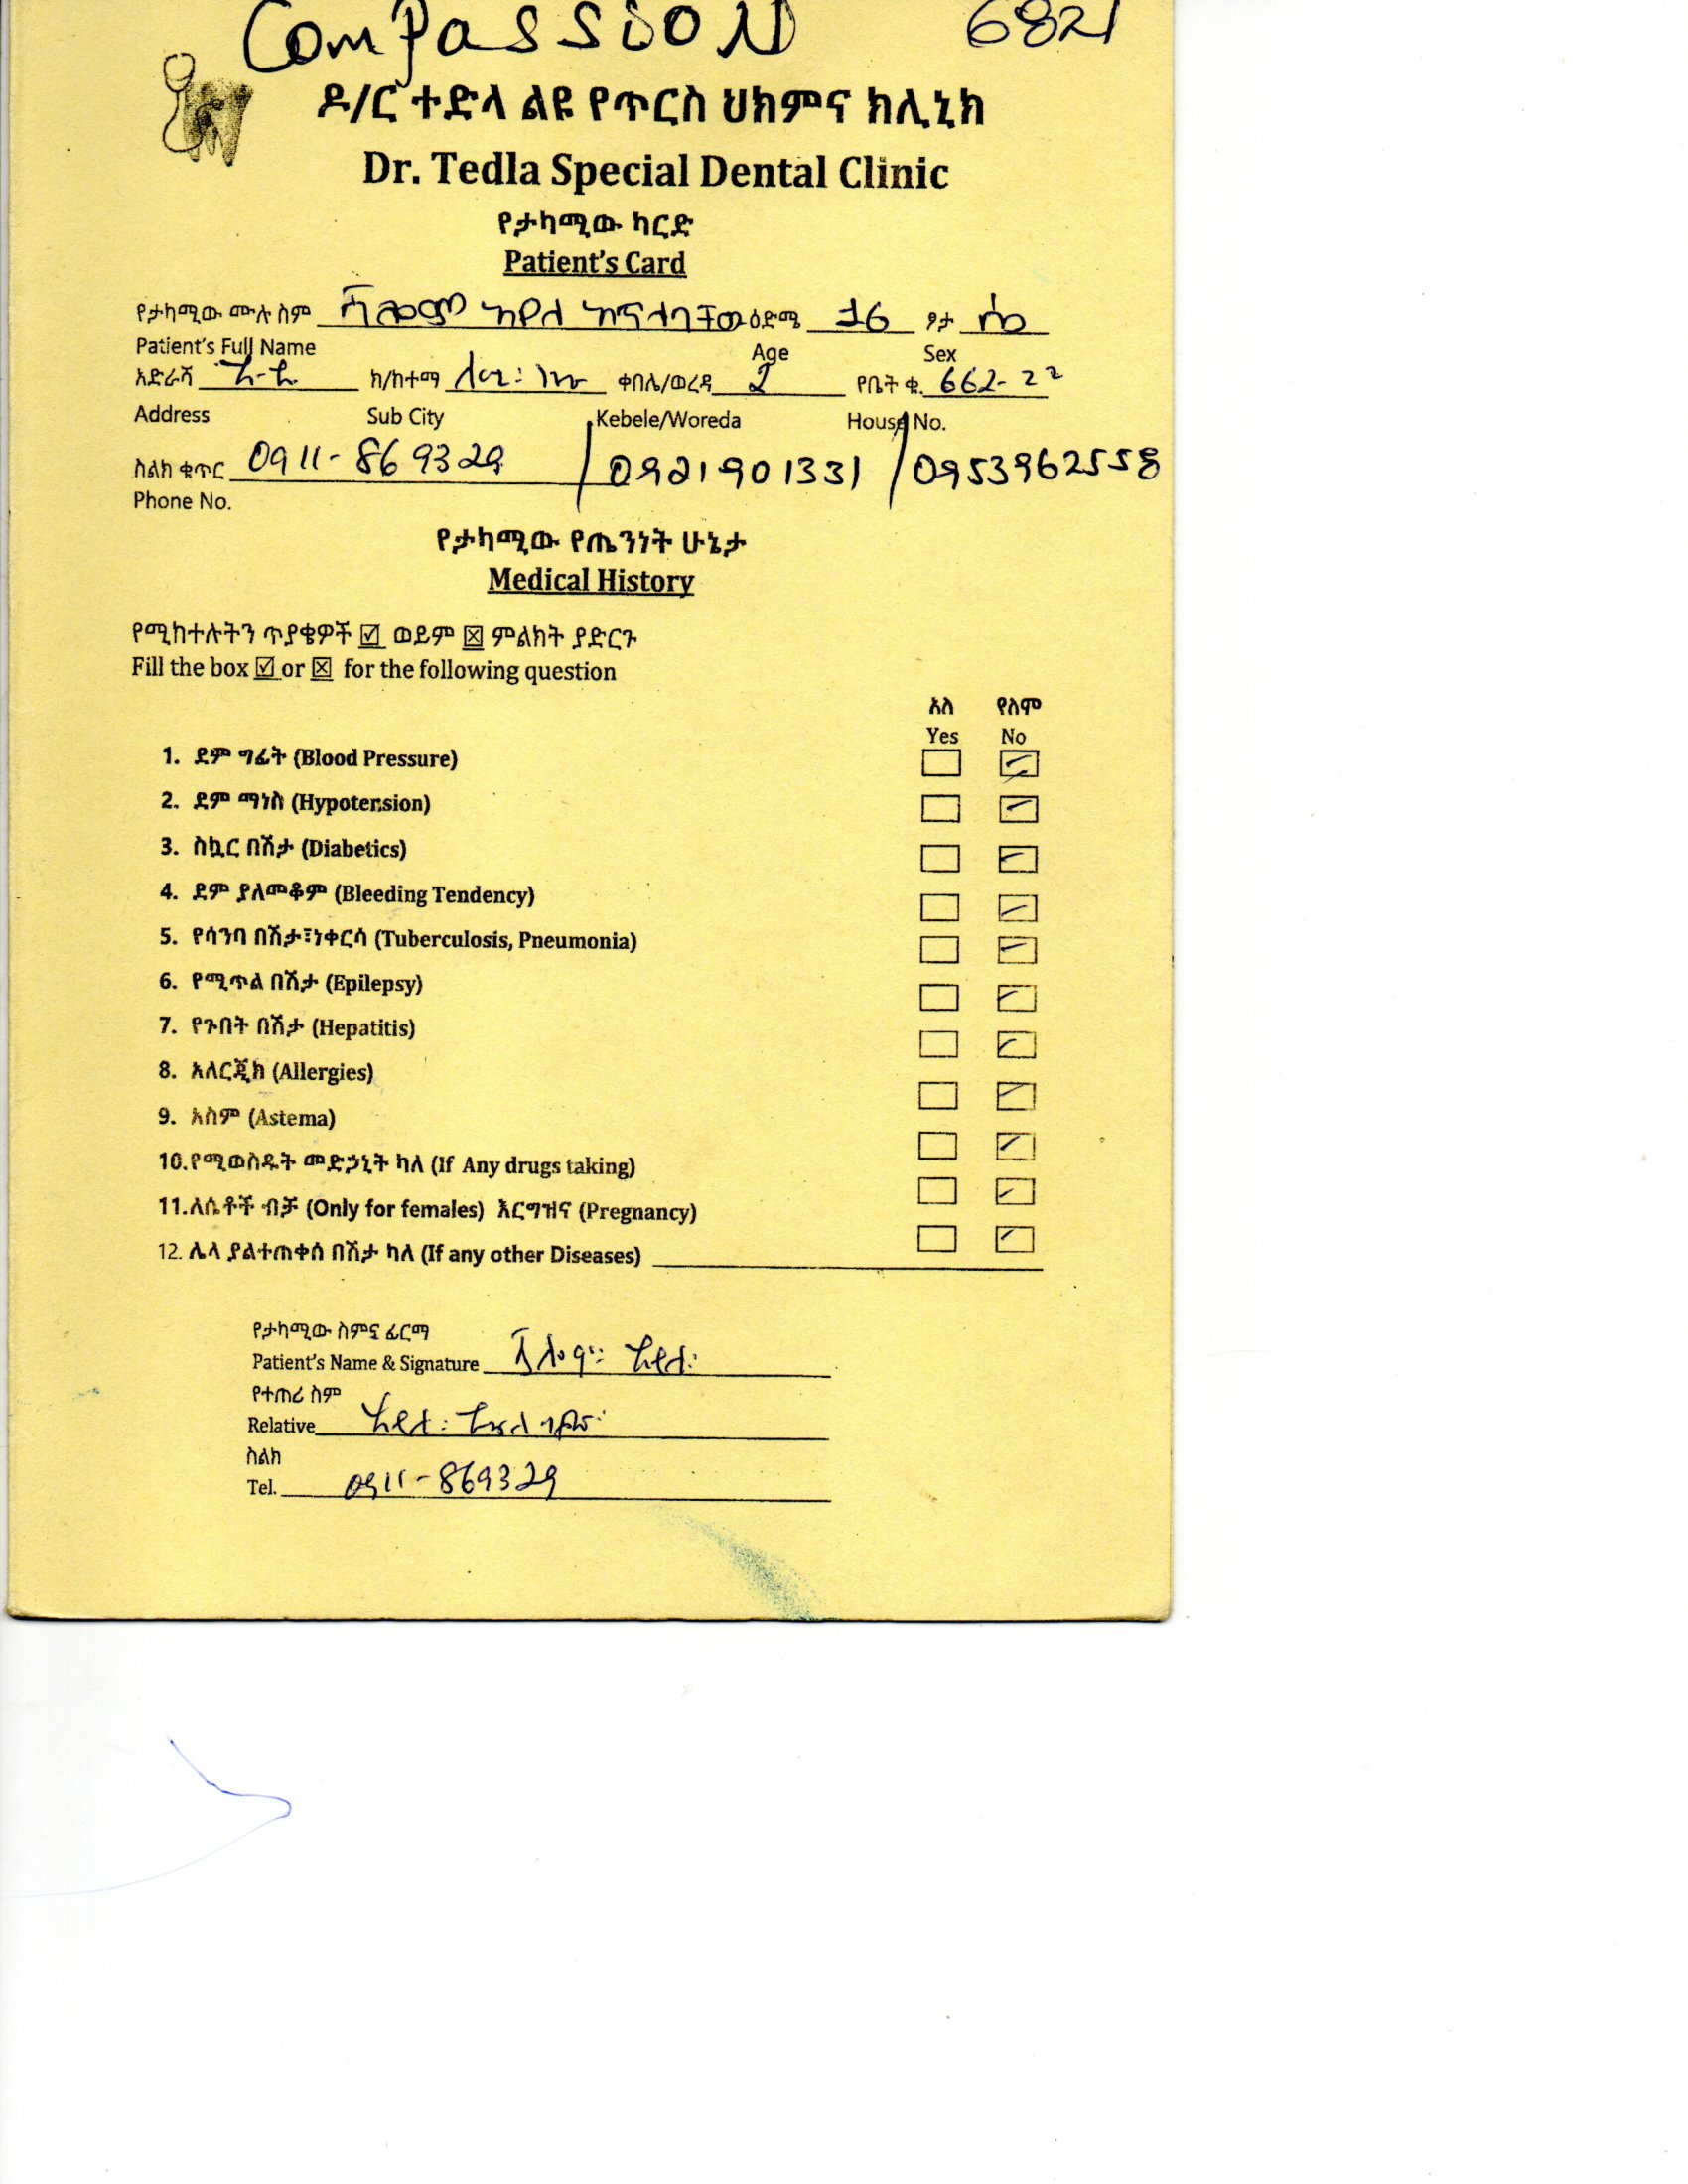 Compassion 6821
ዶ/ር ተድላ ልዩ የጥርስ ህክምና ክሊኒክ
Dr. Tedla Special Dental Clinic
የታካሚው ካርድ
Patient's Card
የታካሚው ሙሉ ስም ሻሎም አየለ አናጋባቸው ዕድሜ 16 ፆታ ሴ
Patient's Full Name Age Sex
አድራሻ አ-አ ክ/ከተማ ቀበሌ/ወረዳ 2 የቤት ቁ. 662-22
Address Sub City Kebele/Woreda House No.
ስልክ ቁጥር 0911-869329 / 0921901331 / 0953962558
Phone No.
የታካሚው የጤንነት ሁኔታ
Medical History
የሚከተሉትን ጥያቄዎች ☑ ወይም ☒ ምልክት ያድርጉ
Fill the box ☑ or ☒ for the following question
አለ የለም
Yes No
1. ደም ግፊት (Blood Pressure)
2. ደም ማነስ (Hypotension)
3. ስኳር በሽታ (Diabetics)
4. ደም ያለመቆም (Bleeding Tendency)
5. የሳንባ በሽታ፣ነቀርሳ (Tuberculosis, Pneumonia)
6. የሚጥል በሽታ (Epilepsy)
7. የጉበት በሽታ (Hepatitis)
8. አለርጂክ (Allergies)
9. አስም (Astema)
10.የሚወስዱት መድኃኒት ካለ (If Any drugs taking)
11.ለሴቶች ብቻ (Only for females) እርግዝና (Pregnancy)
12. ሌላ ያልተጠቀሰ በሽታ ካለ (If any other Diseases)
የታካሚው ስምና ፊርማ
Patient's Name & Signature ሻሎም፡ አየለ፡
የተጠሪ ስም
Relative አየለ፡
ስልክ
Tel. 0911-869329